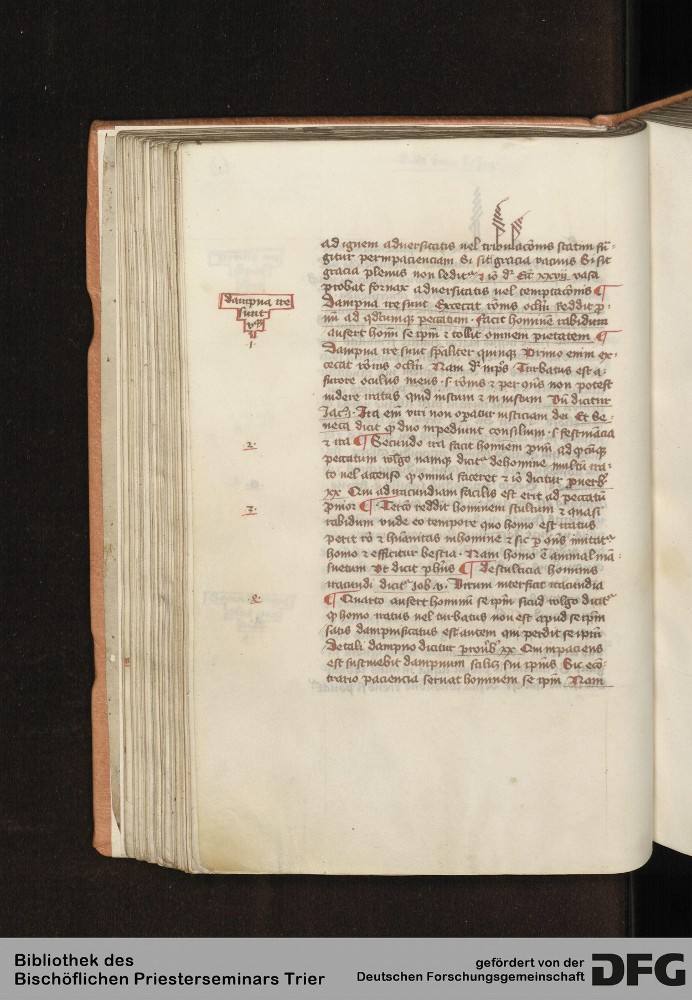 ad ignem adversitatis vel tribulacionis statim fu-
gitur per impacienciam Si sit gracia vacuus Si sit
gracia plenus non leditr et io dr Ecci xxvii vasa
probat fornax adversitatis vel temptacionis ¶
Dampna ire sunt Excecat rōnis oclm Reddit p-
nū ad qdcumq peccatum · facit hominē rabidum
aufert hom se ipm et tollit omnem pietatem ¶
dampna ire
sunt
vqz
·1·
Dampna ire sunt spāliter quinque Primo enim ex-
cecat rōnis oclm Nam dr in ps Turbatus est a-
furore oculus meus · s rōnis et per qns non potest
videre iratus quid iustum et in iustum Vn dicitur
Jacz · Ira eim viri non operatur iusticiam dei Et Se-
neca dicit q duo impediunt consilium · s festinācia
·2·
et ira ¶ Secundo ira facit hominem pnū ad qcūq
peccatum wlgo namque dicitr de homine multū ira-
to vel accenso q omnia faceret et io dicitur prverb
xx Qui ad iracundiam facilis est erit ad peccatū
·3·
pnior ¶ · Tercō reddit hominem stultum et quasi
rabidum vnde eo tempore quo homo est iratus
perit rō et hūanitas in homine et sic p qns imitatr
homo et efficitur bestia · Nam homo ē animal mā-
suetum Vt dicit phus ¶ de stulticia hominis
iracundi dicitr Job v · Virum interficit iracundia
·4·
¶ Quarto aufert homini se ipm sicud wlgo dicitr
q homo iratus vel turbatus non est apud se ipm
satis dampnificatus est autem qui perdit se ipm
De tali dampno dicitur proub xx Qui impaciens
est sustinebit dampnum scilicz sui ipius Sic ecō-
trario paciencia servat hominem se ipm Nam
Bibliothek des
Bischöflichen Priesterseminars Trier
gefördert von der
Deutschen Forschungsgemeinschaft
DFG